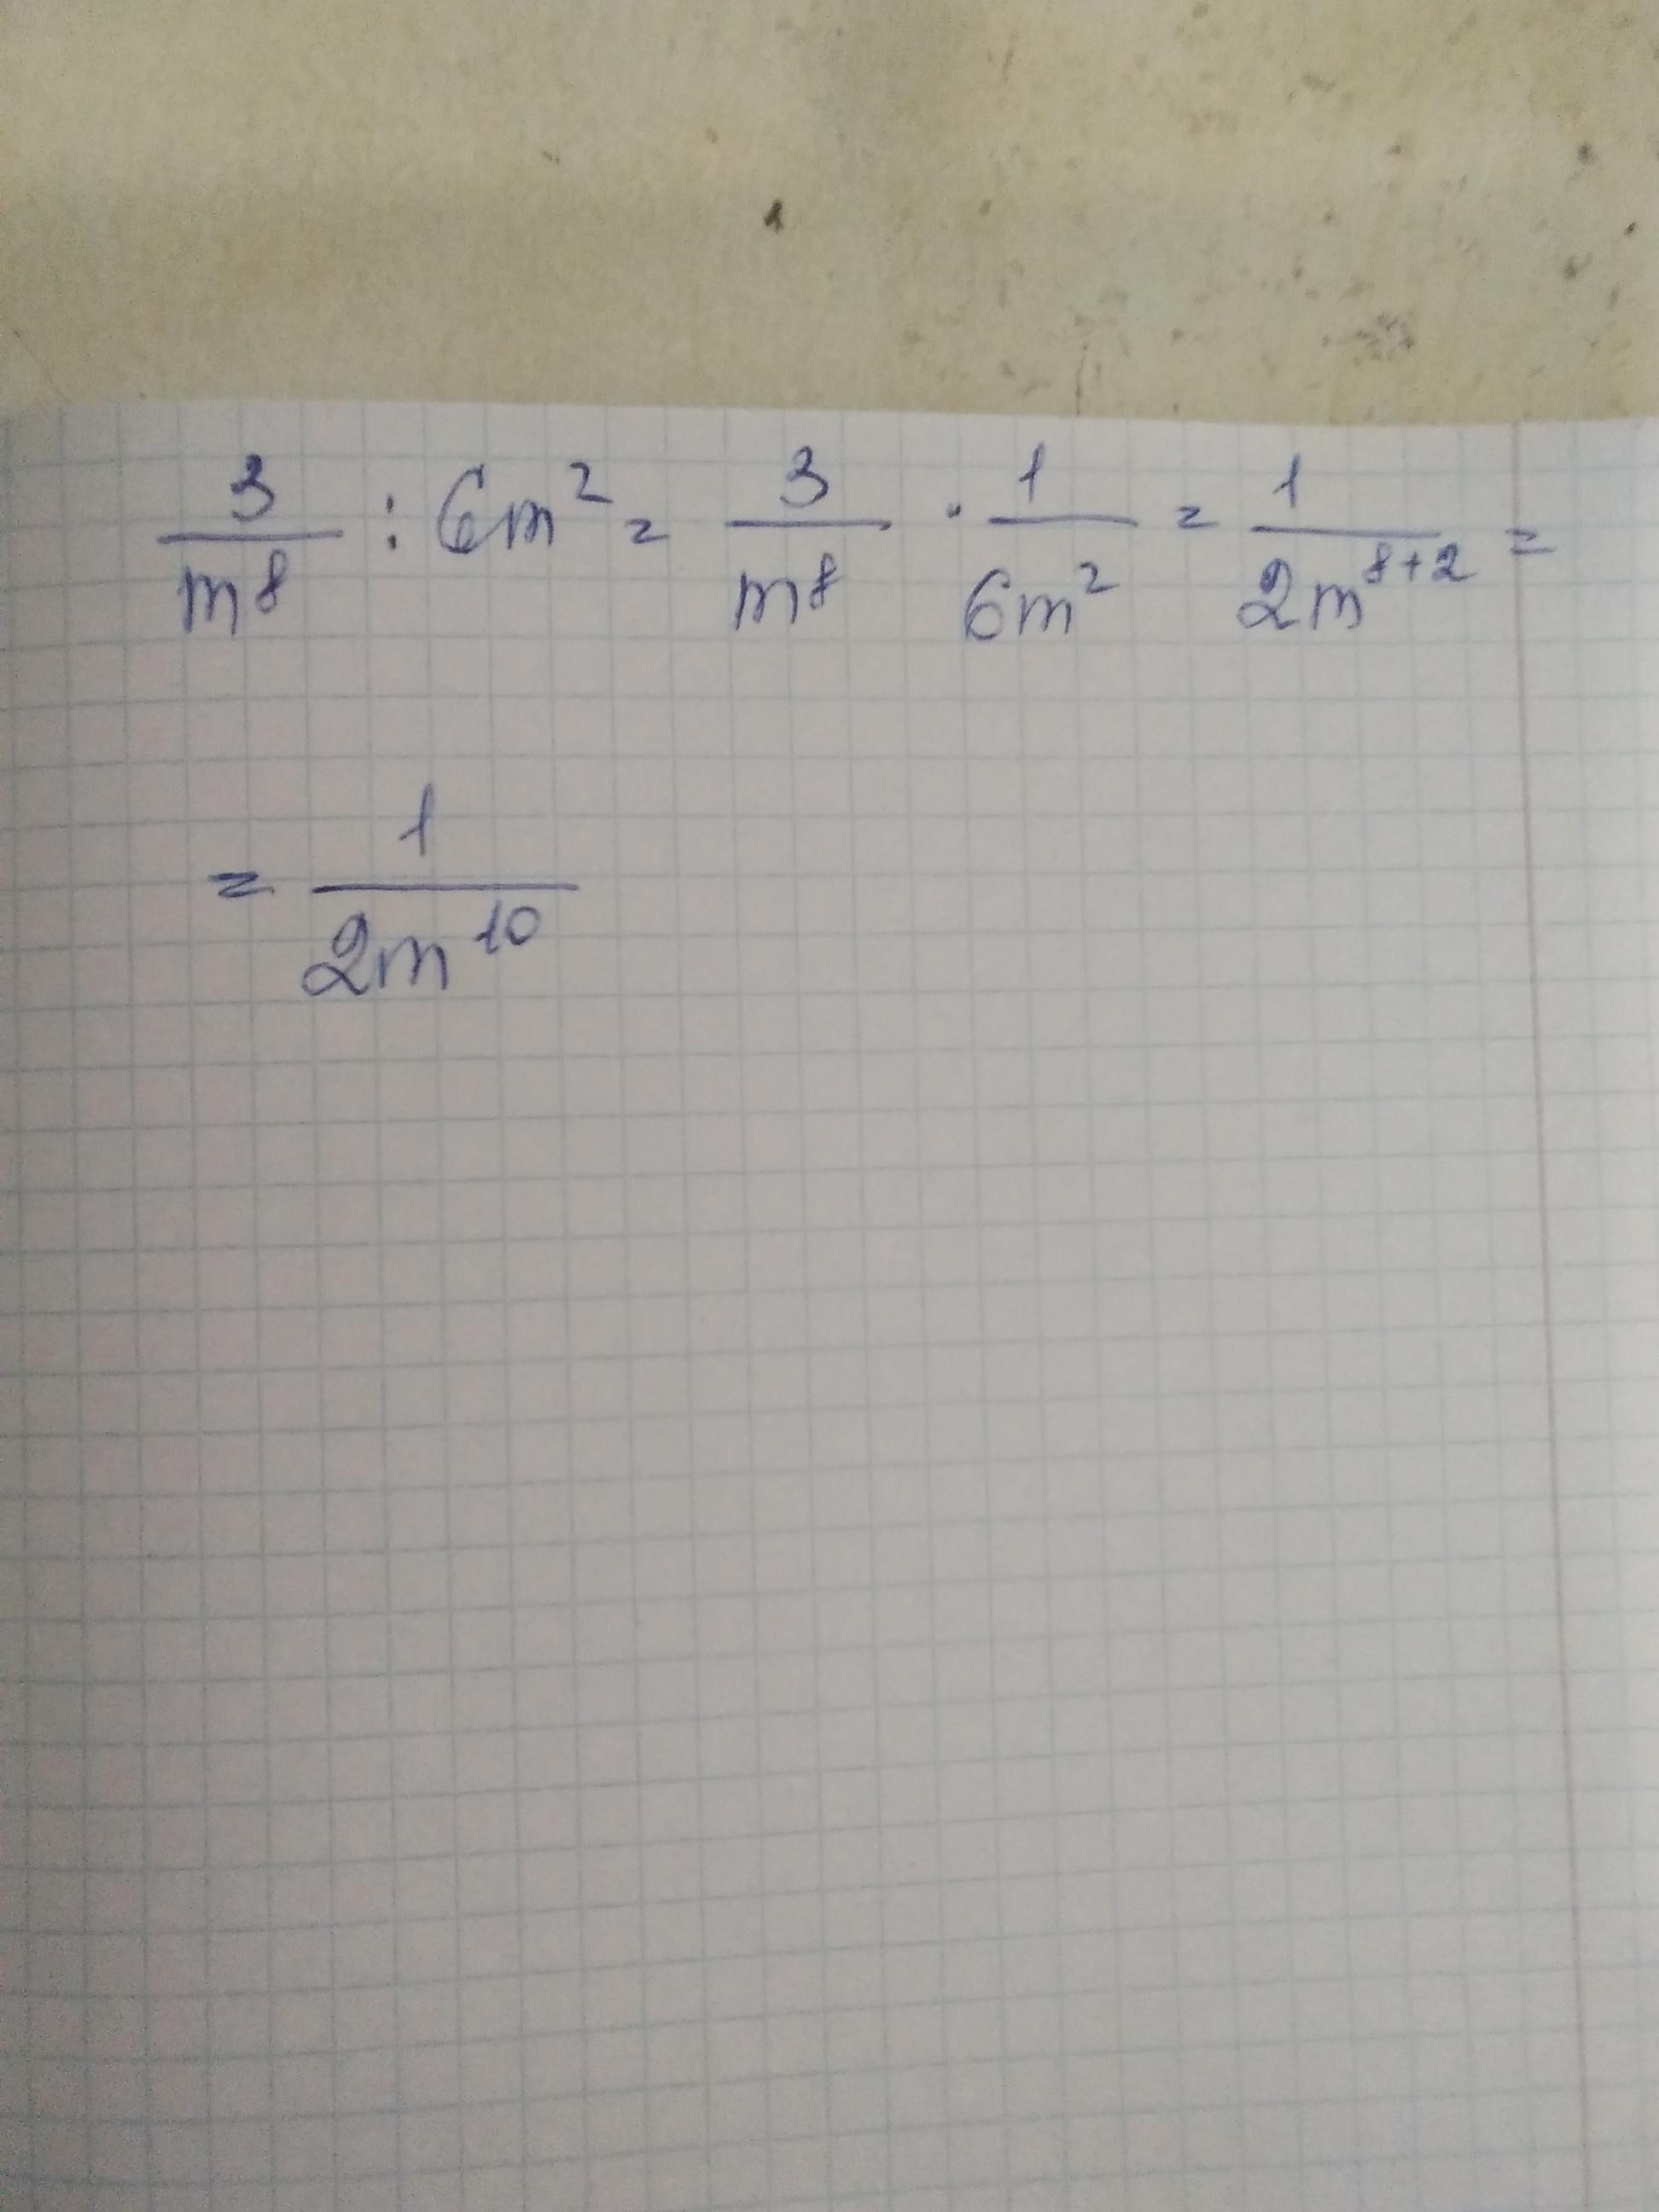 3/m⁸ : 6m² = 3/m⁸ · 1/6m² = 1/2m⁸⁺² =
= 1/2m¹⁰